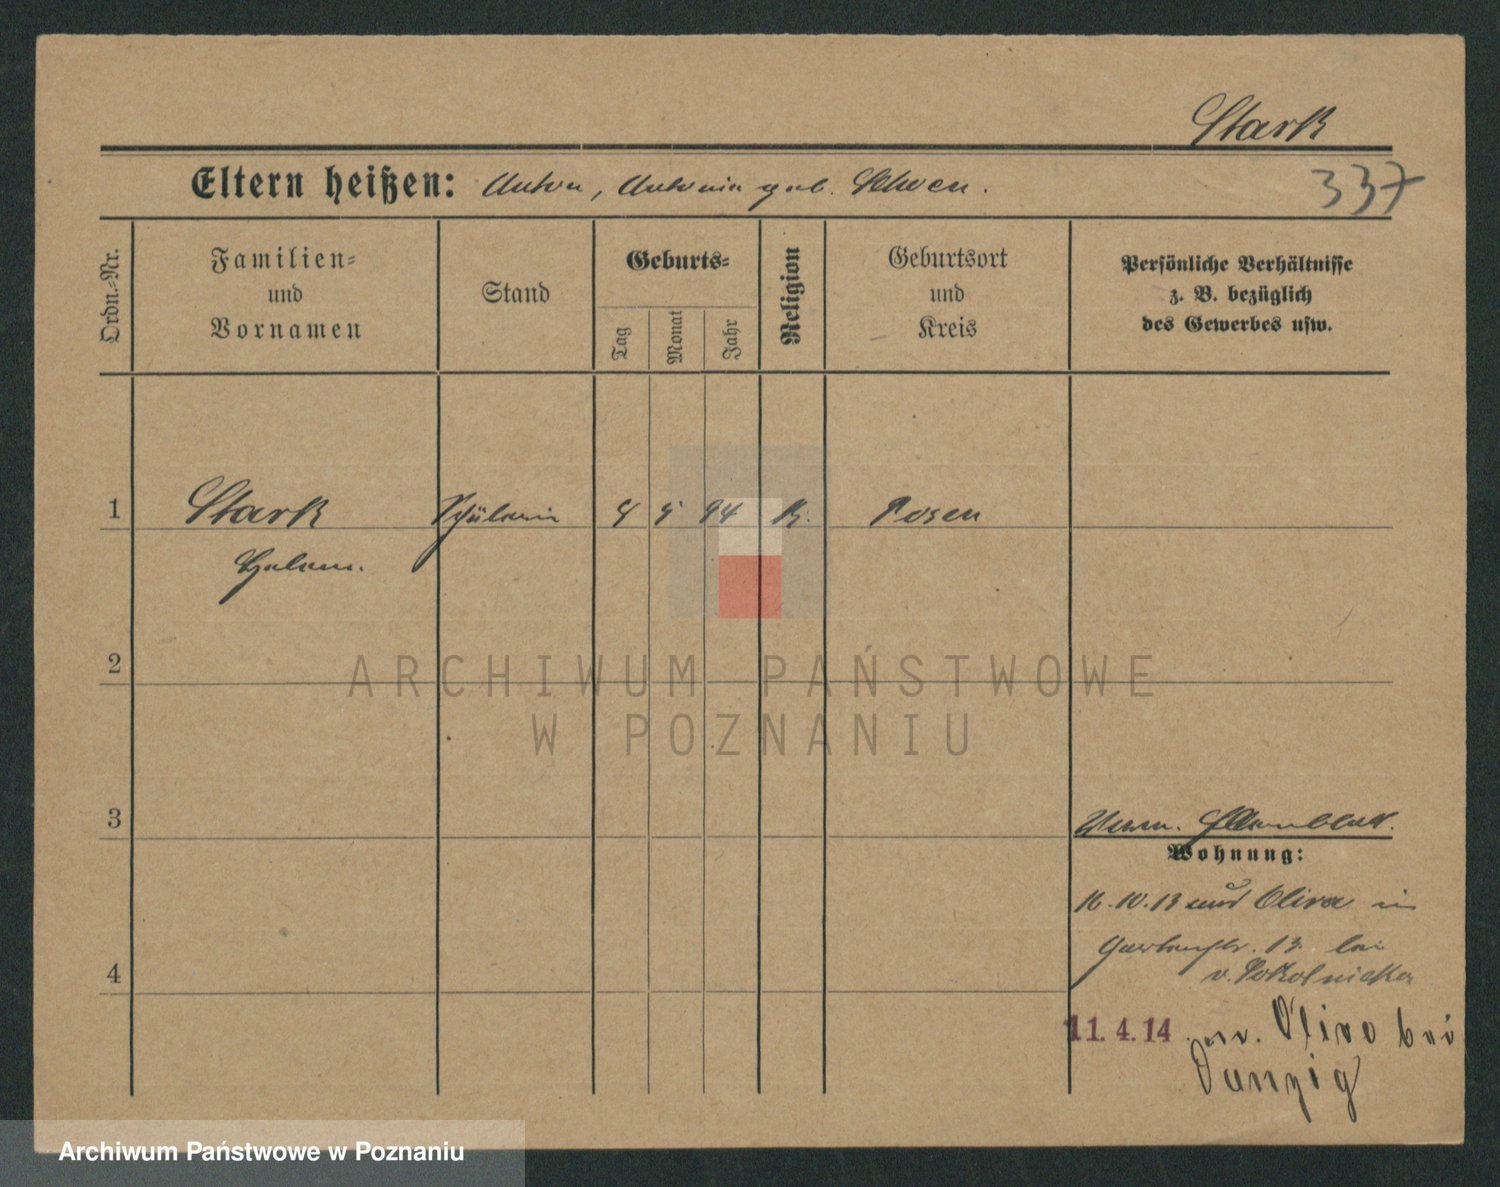 Stark
Eltern heißen: Anton, Antonia geb. Schoen.
337
Ordn.=Nr.
Familien=
und
Vornamen
Stand
Geburts=
Tag
Monat
Jahr
Religion
Geburtsort
und
Kreis
Persönliche Verhältnisse
z. B. bezüglich
des Gewerbes usw.
1 Stark Schülerin 4 5 94 K. Posen
2
ARCHIWUM PAŃSTWOWE
W POZNANIU
3
Wohnung:
16.10.13 aus Oliva in
Gartenstr. 13. bei
v. Sokolnicka
4
11. 4. 14 Oliva bei
Danzig
Archiwum Państwowe w Poznaniu